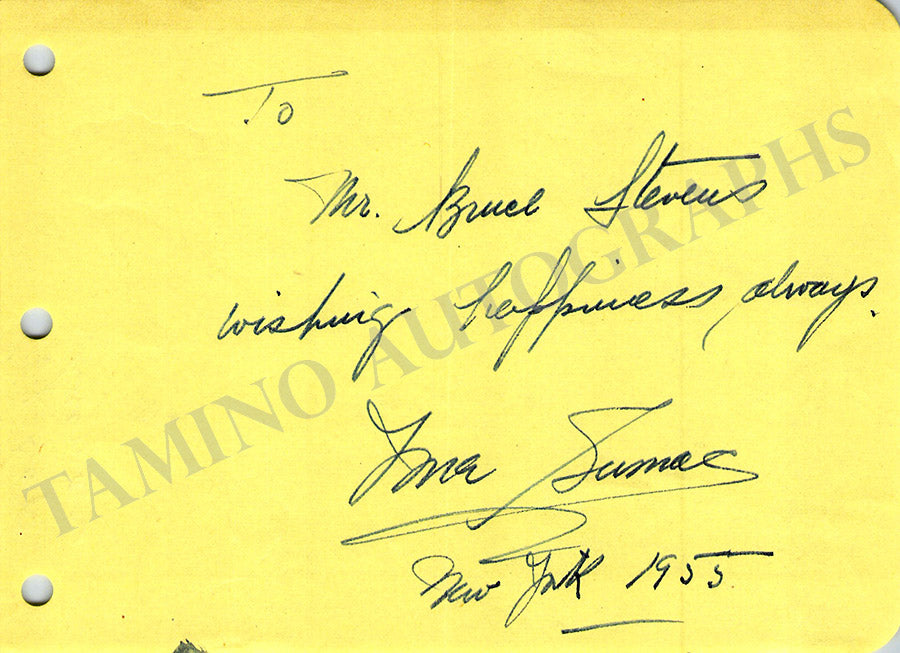 To
Mr. Bruce Stevens
wishing happiness, always.
Yma Sumac
New York 1955.
TAMINO AUTOGRAPHS